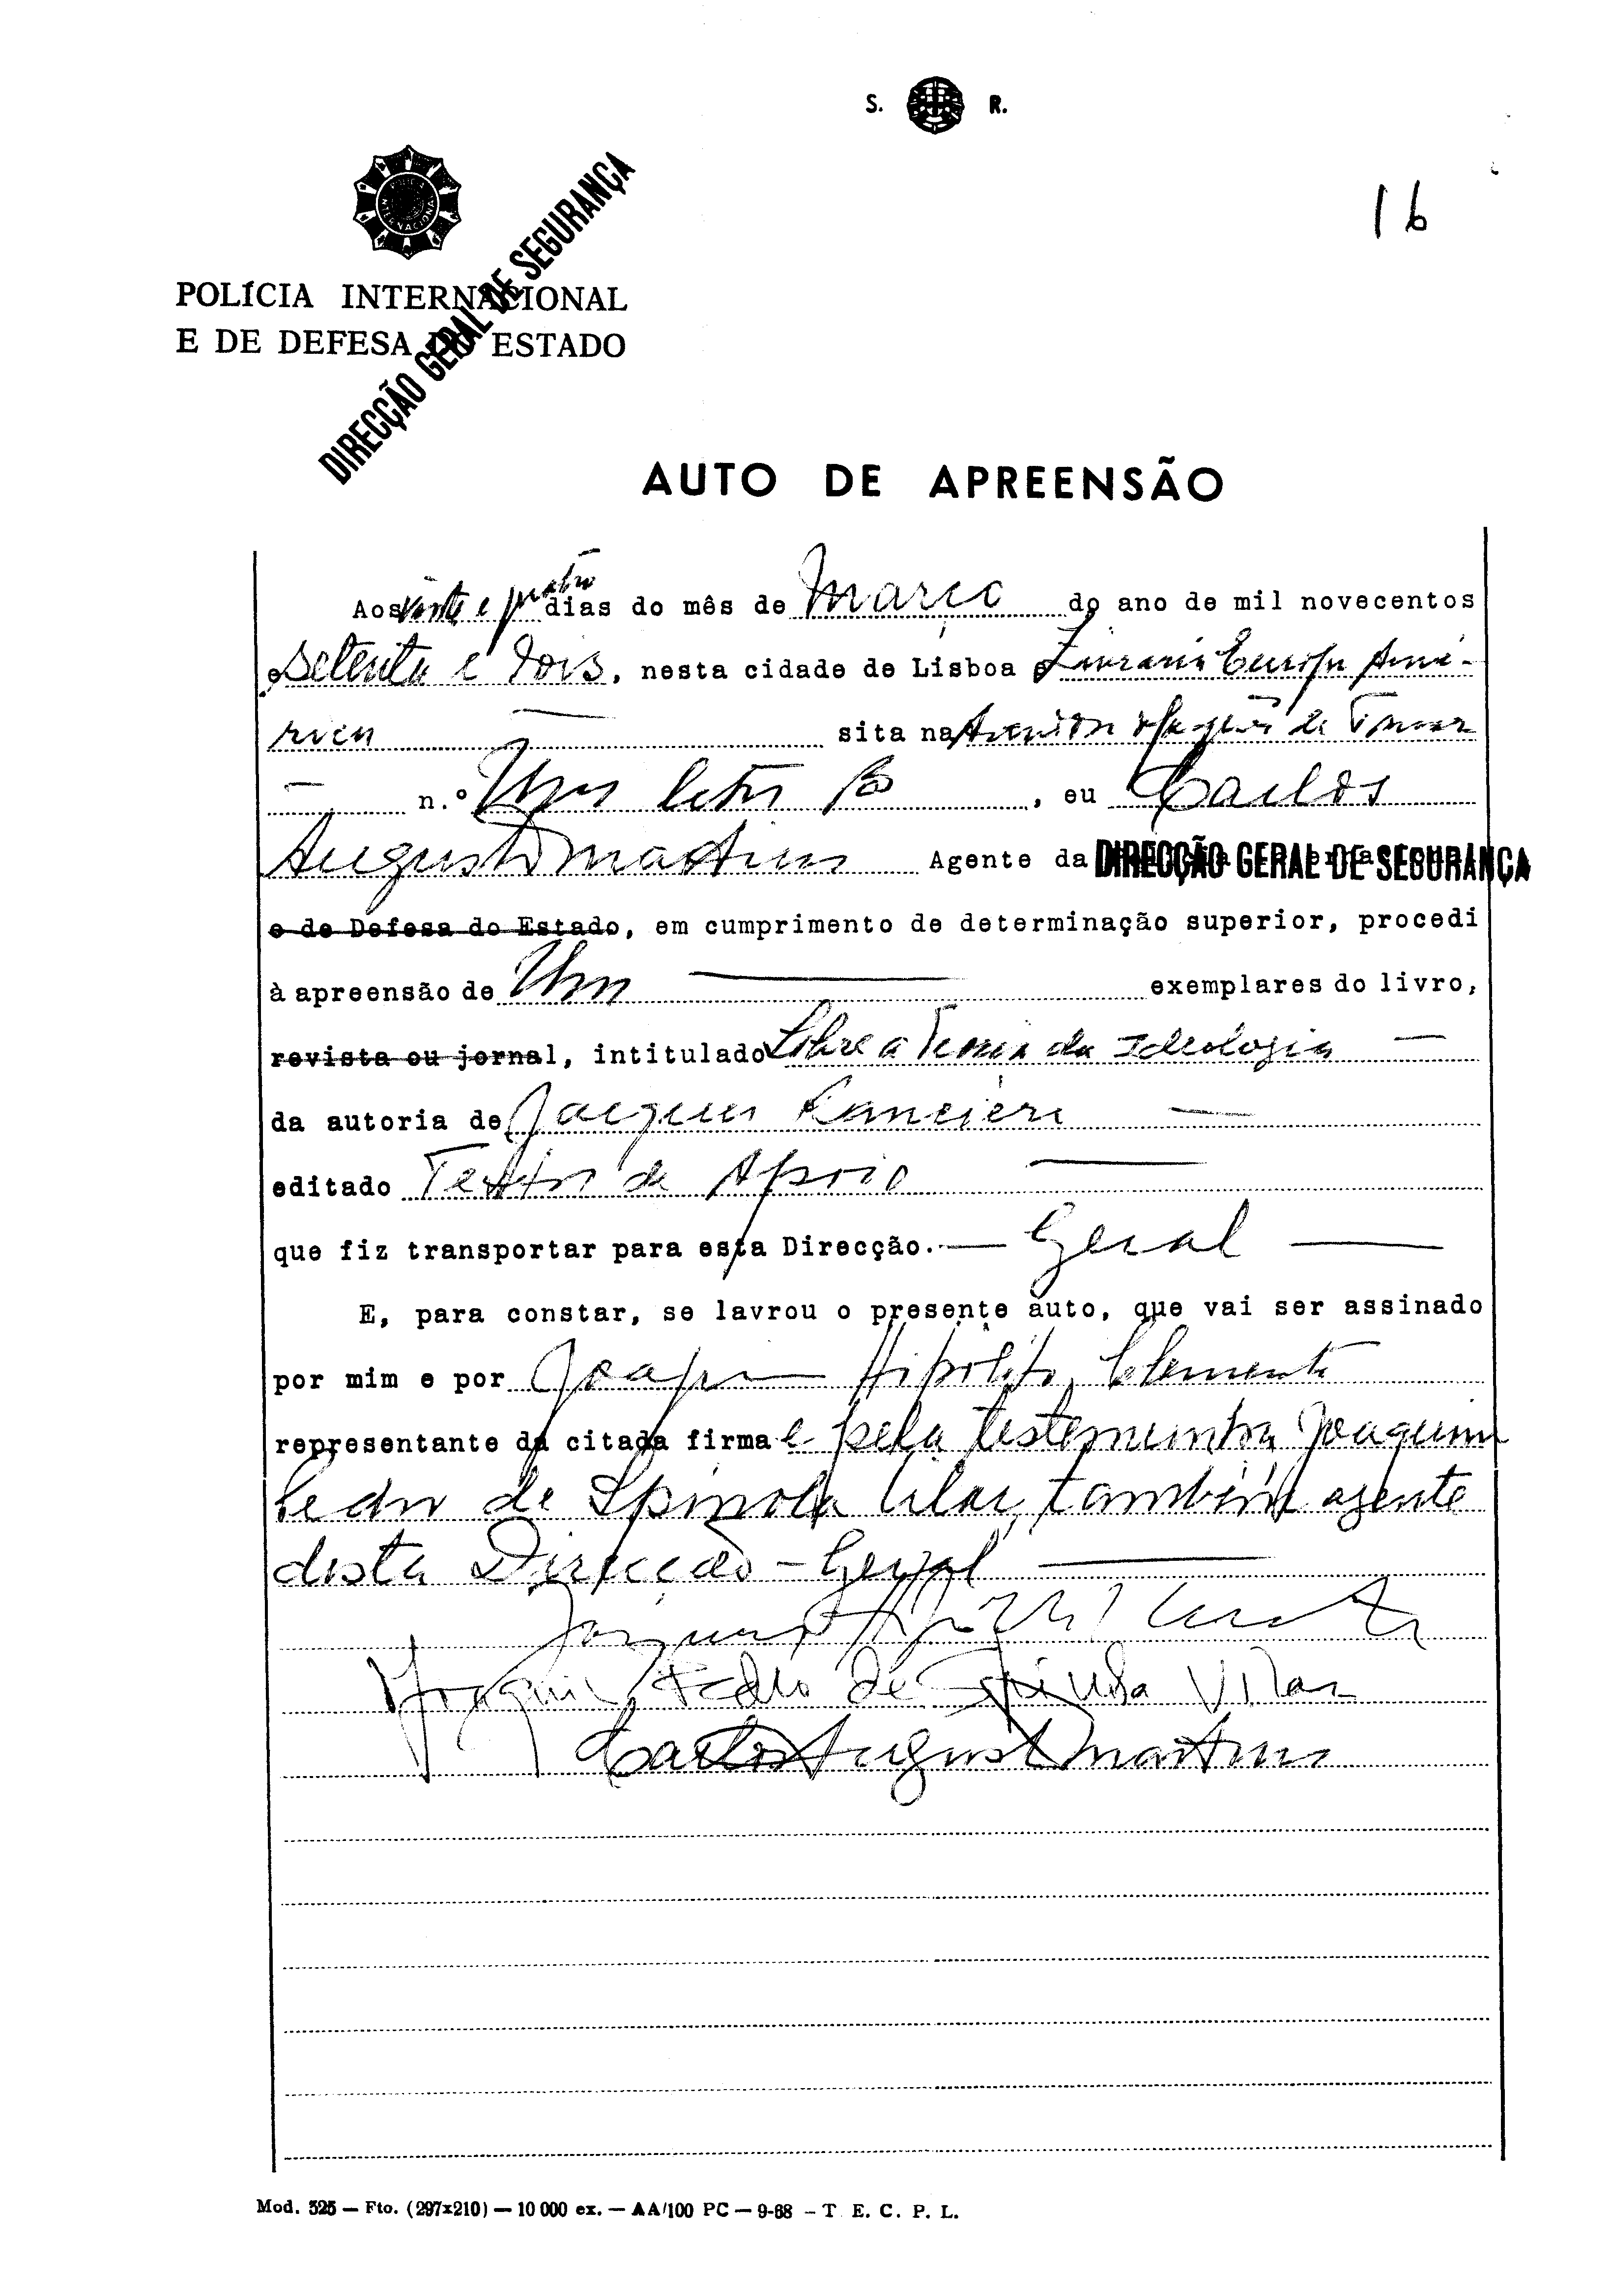 S. R.
16
POLÍCIA INTERNACIONAL
E DE DEFESA DO ESTADO
DIRECÇÃO GERAL DE SEGURANÇA
AUTO DE APREENSÃO
Aos vinte e quatro dias do mês de Março do ano de mil novecentos
e Setenta e dois, nesta cidade de Lisboa e Livraria Europa Amé-
rica sita na Avenida Marquês de Tomar
n.º Um letra B, eu Carlos
Augusto Martins Agente da DIRECÇÃO GERAL DE SEGURANÇA
e de Defesa do Estado, em cumprimento de determinação superior, procedi
à apreensão de Um exemplares do livro,
revista ou jornal, intitulado Sobre a Teoria da Ideologia —
da autoria de Jacques Ranciere —
editado Textos de Apoio —
que fiz transportar para esta Direcção.— Geral —
E, para constar, se lavrou o presente auto, que vai ser assinado
por mim e por Joaquim Hipólito Clemente
representante da citada firma e pela testemunha Joaquim
Pedro de Spinola Vilar, também agente
desta Direcção-Geral —
Joaquim Hipólito Clemente
Joaquim Pedro de Spinola Vilar
Carlos Augusto Martins
Mod. 525 — Fto. (297x210) — 10 000 ex. — AA/100 PC — 9-68 - T. E. C. P. L.